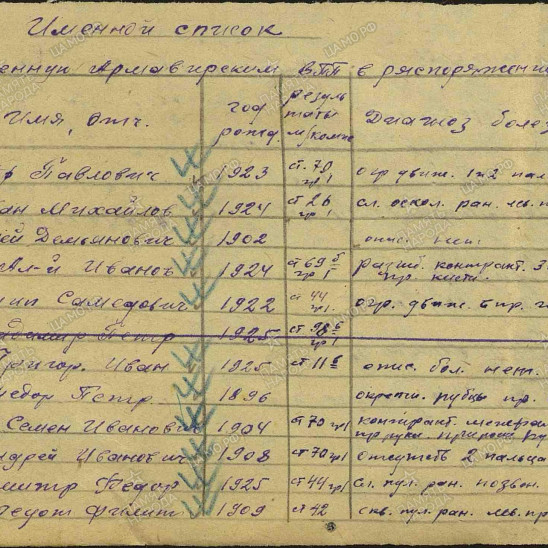 Именной список
Армавирским ВПП в распоряжени
Имя, отч. год рожд. резуль таты м/комис Диагноз болез
Павлович 1923 ст. 79 гр I огр движ. 1 и 2 пал
Михайлов 1924 ст 26 сл. оскол. ран. лев. п
ей Демьянович 1902 опис. нет.
Ал-й Иванов 1924 ст 69 б гр I контракт. 3 пр. кисти
Самедович 1922 ст 44 гр I огр. движ. б пр.
Петр 1925 ст 98 б гр I
Григор. Иван 1925 ст 11 б опис. бол. нет.
Федор Петр. 1896 рубцы пр.
Семен Иванович 1904 ст 70 гр I контракт.
ндрей Иванович 1908 ст 70 гр I отсутств 2 пальца
митр Федор 1925 ст 44 гр I сл. пул. ран. позвон.
Федот Филип 1909 ст 42 скв. пул. ран. лев. пр